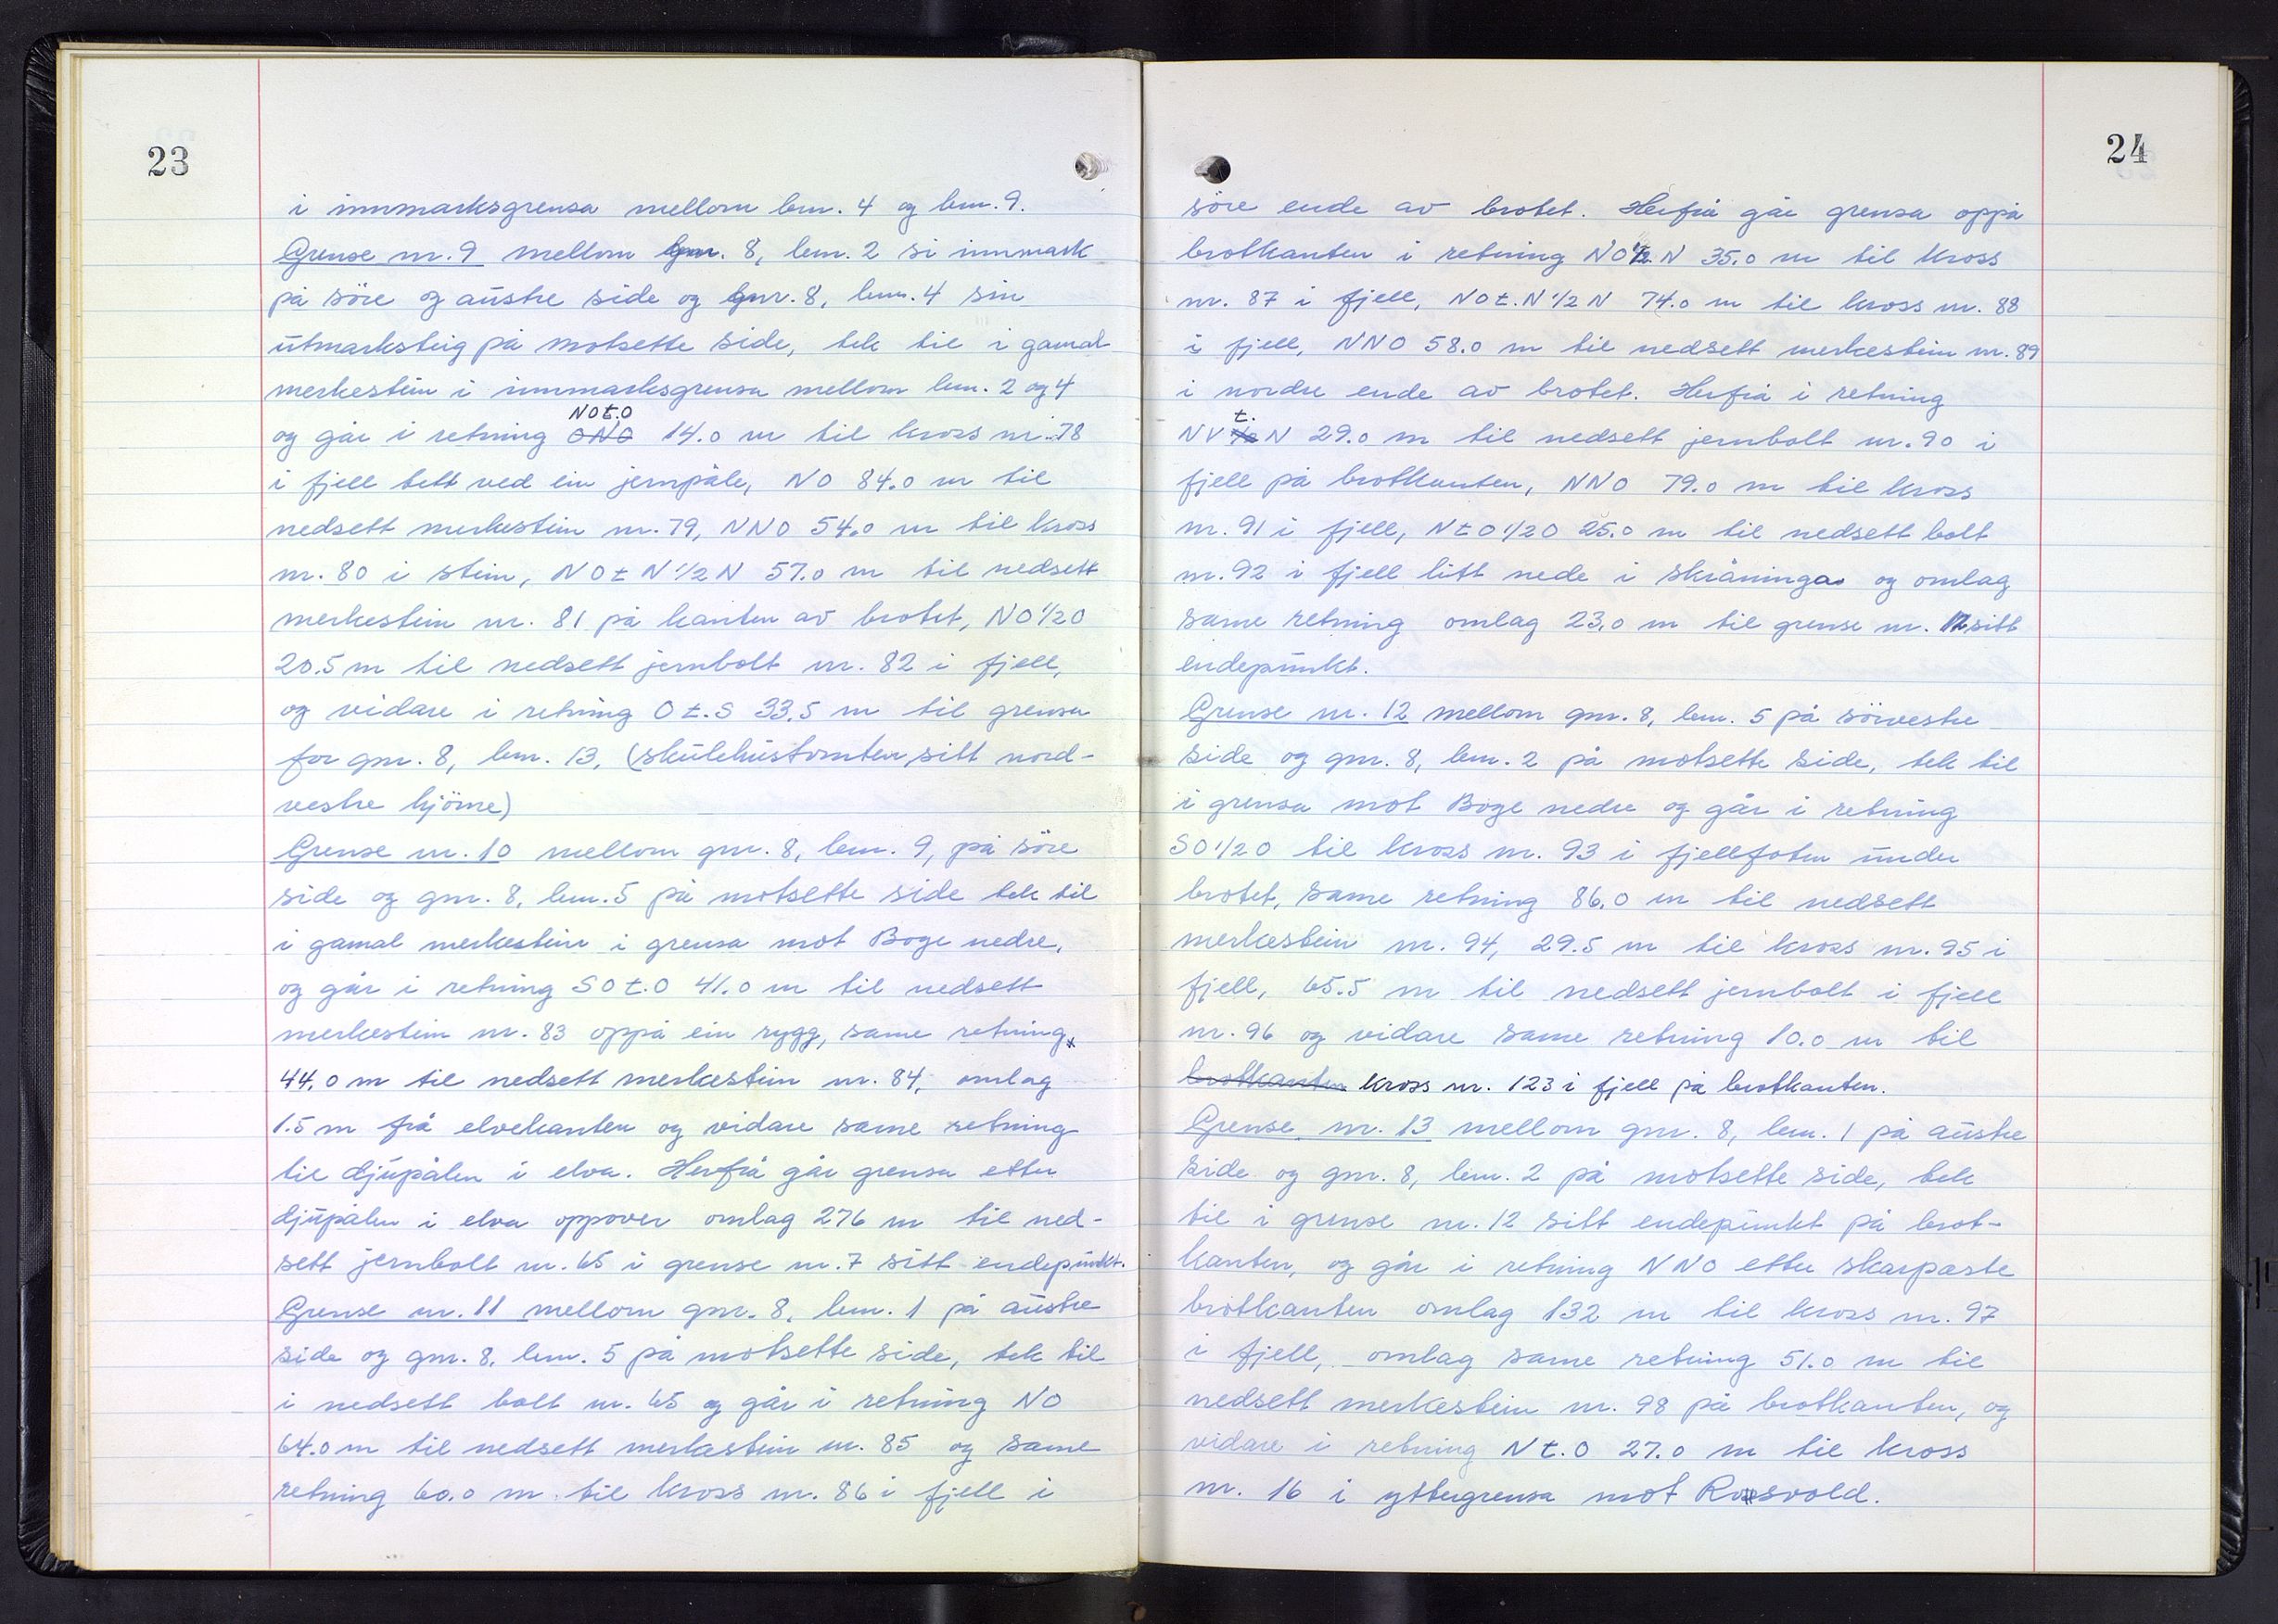 23
i innmarksgrensa mellom bnr. 4 og bnr. 9.
Grense nr. 9 mellom gnr. 8, bnr. 2 si innmark
på söre og austre side og gnr. 8, bnr. 4 sin
utmarksteig på motsette side, tek til i gamal
merkestein i innmarksgrensa mellom bnr. 2 og 4
NOt.O
og går i retning ONO 14.0 m til kross nr. 78
i fjell tett ved ein jernpåle, NO 84.0 m til
nedsett merkestein nr. 79, NNO 54.0 m til kross
nr. 80 i stein, NOt N 1/2 N 57.0 m til nedsett
merkestein nr. 81 på kanten av brotet, NO 1/2 O
20.5 m til nedsett jernbolt nr. 82 i fjell,
og vidare i retning O t. S 33.5 m til grensa
for gnr. 8, bnr. 13, (skulehustomten sitt nord-
vestre hjörne)
Grense nr. 10 mellom gnr. 8, bnr. 9, på söre
side og gnr. 8, bnr. 5 på motsette side tek til
i gamal merkestein i grensa mot Boge nedre,
og går i retning SO t. O 41.0 m til nedsett
merkestein nr. 83 oppå ein rygg, same retning
44.0 m til nedsett merkestein nr. 84, omlag
1.5 m frå elvekanten og vidare same retning
til djupålen i elva. Herfrå går grensa etter
djupålen i elva oppover omlag 276 m til ned-
sett jernbolt nr. 65 i grense nr. 7 sitt endepunkt.
Grense nr. 11 mellom gnr. 8, bnr. 1 på austre
side og gnr. 8, bnr. 5 på motsette side, tek til
i nedsett bolt nr. 65 og går i retning NO
64.0 m til nedsett merkestein nr. 85 og same
retning 60.0 m til kross nr. 86 i fjell i
24
söre ende av brotet. Herfrå går grensa oppå
brotkanten i retning NO 1/2 N 35.0 m til kross
nr. 87 i fjell, NO t. N 1/2 N 74.0 m til kross nr. 88
i fjell, NNO 58.0 m til nedsett merkestein nr. 89
i nordre ende av brotet. Herfrå i retning
t.
NV 1/2 N 29.0 m til nedsett jernbolt nr. 90 i
fjell på brotkanten, NNO 79.0 m til kross
nr. 91 i fjell, N t O 1/2 O 25.0 m til nedsett bolt
nr. 92 i fjell litt nede i skråninga og omlag
same retning omlag 23.0 m til grense nr. 12 sitt
endepunkt.
Grense nr. 12 mellom gnr. 8, bnr. 5 på sörvestre
side og gnr. 8, bnr. 2 på motsette side, tek til
i grensa mot Boge nedre og går i retning
SO 1/2 O til kross nr. 93 i fjellfoten under
brotet, same retning 86.0 m til nedsett
merkestein nr. 94, 29.5 m til kross nr. 95 i
fjell, 65.5 m til nedsett jernbolt i fjell
nr. 96 og vidare same retning 10.0 m til
brotkanten kross nr. 123 i fjell på brotkanten.
Grense nr. 13 mellom gnr. 8, bnr. 1 på austre
side og gnr. 8, bnr. 2 på motsette side, tek
til i grense nr. 12 sitt endepunkt på brot-
kanten, og går i retning NNO etter skarpaste
brotkanten omlag 132 m til kross nr. 97
i fjell, omlag same retning 51.0 m til
nedsett merkestein nr. 98 på brotkanten, og
vidare i retning N t. O 27.0 m til kross
nr. 16 i yttergrensa mot